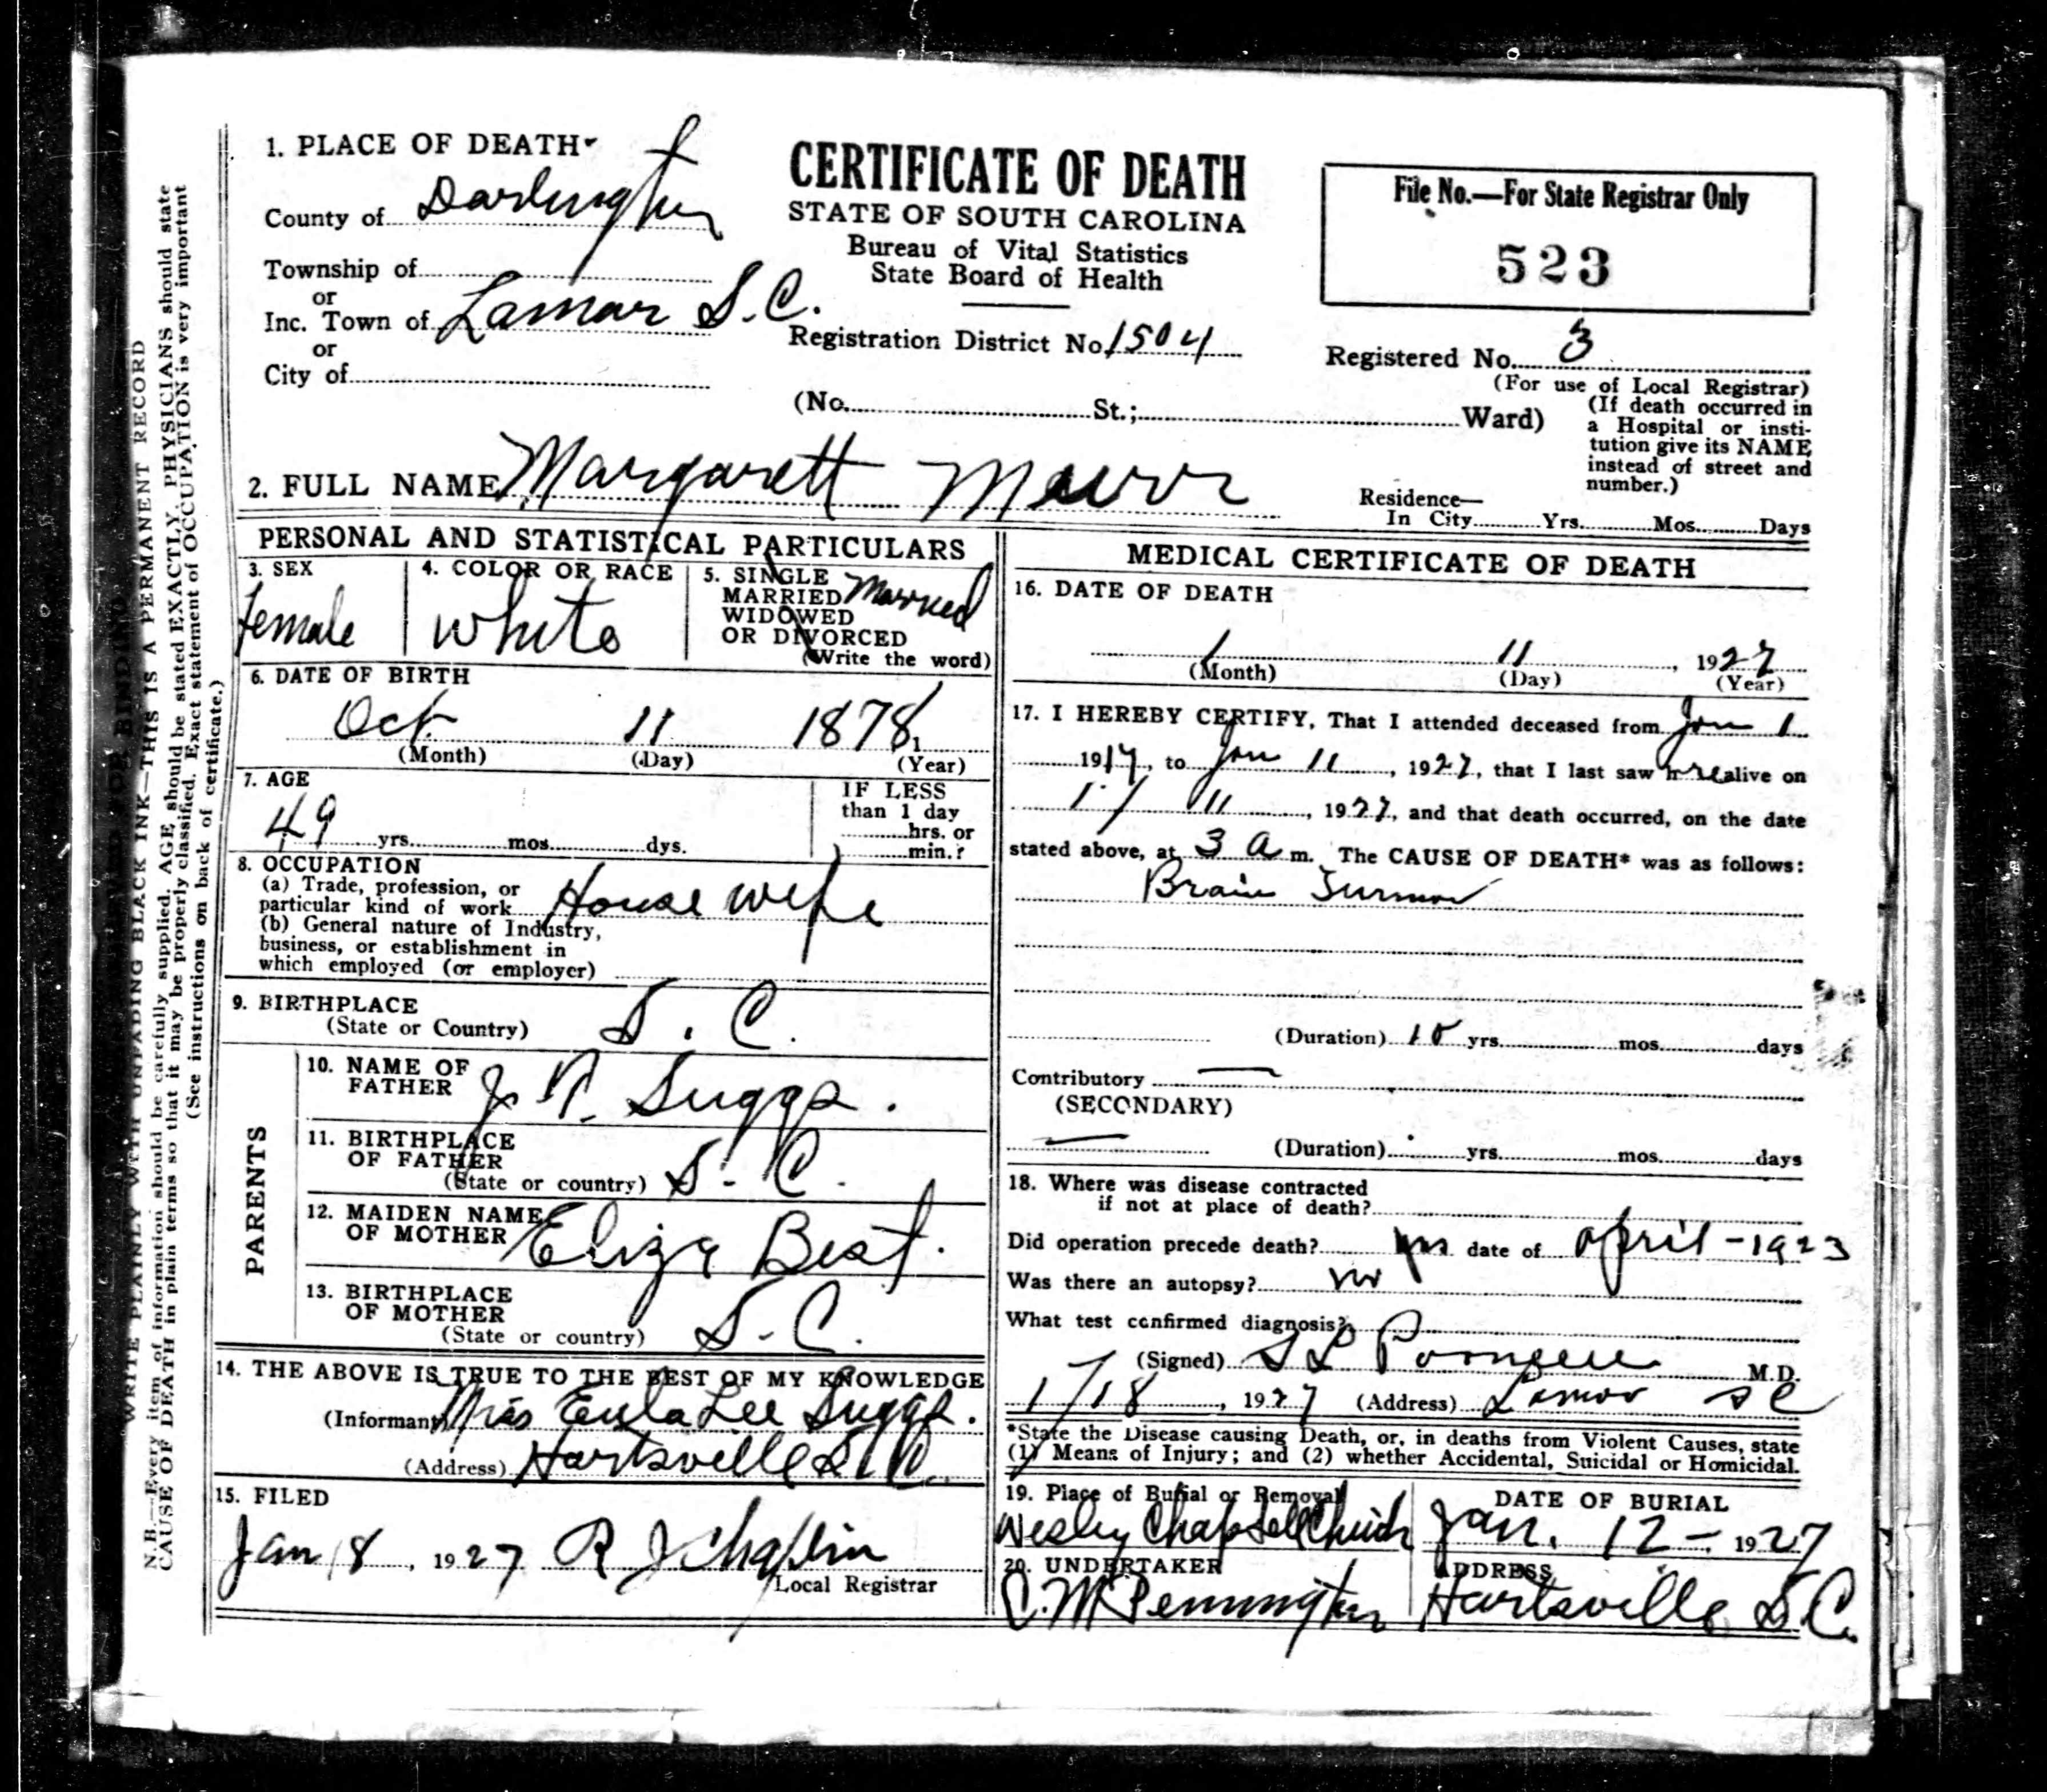 1. PLACE OF DEATH
County of Darlington
Township of
or
Inc. Town of Lamar S.C.
or
City of
CERTIFICATE OF DEATH
STATE OF SOUTH CAROLINA
Bureau of Vital Statistics
State Board of Health
Registration District No. 1504
File No.—For State Registrar Only
523
Registered No. 3
(For use of Local Registrar)
(No. St.; Ward)
(If death occurred in
a Hospital or insti-
tution give its NAME
instead of street and
number.)
2. FULL NAME Margarett
Residence—
In City Yrs. Mos. Days
PERSONAL AND STATISTICAL PARTICULARS
3. SEX
female
4. COLOR OR RACE
White
5. SINGLE
MARRIED Married
WIDOWED
OR DIVORCED
(Write the word)
6. DATE OF BIRTH
Oct. 11 1878
(Month) (Day) (Year)
7. AGE
49 yrs. mos. dys.
IF LESS
than 1 day
hrs. or
min.?
8. OCCUPATION
(a) Trade, profession, or
particular kind of work House wife
(b) General nature of Industry,
business, or establishment in
which employed (or employer)
9. BIRTHPLACE
(State or Country) S. C.
PARENTS
10. NAME OF
FATHER Suggs.
11. BIRTHPLACE
OF FATHER
(State or country) S. C.
12. MAIDEN NAME
OF MOTHER Eliza Best.
13. BIRTHPLACE
OF MOTHER
(State or country) S. C.
14. THE ABOVE IS TRUE TO THE BEST OF MY KNOWLEDGE
(Informant) Miss Eula Lee Suggs.
(Address) Hartsville S. C.
15. FILED
Jan 18, 1927 R J Chaplin
Local Registrar
MEDICAL CERTIFICATE OF DEATH
16. DATE OF DEATH
1 11, 1927
(Month) (Day) (Year)
17. I HEREBY CERTIFY, That I attended deceased from Jan 1
1917, to Jan 11, 1927, that I last saw her alive on
1/11, 1927, and that death occurred, on the date
stated above, at 3 a m. The CAUSE OF DEATH* was as follows:
Brain Turmor
(Duration) 10 yrs. mos. days
Contributory —
(SECONDARY)
— (Duration) yrs. mos. days
18. Where was disease contracted
if not at place of death?
Did operation precede death? yes date of April - 1923
Was there an autopsy? no
What test confirmed diagnosis?
(Signed) S L M.D.
1/18, 1927 (Address) Lamar SC
*State the Disease causing Death, or, in deaths from Violent Causes, state
(1) Means of Injury; and (2) whether Accidental, Suicidal or Homicidal.
19. Place of Burial or Removal
Wesley Chappell Church
DATE OF BURIAL
Jan. 12 - 1927
20. UNDERTAKER
C. M Pennington
ADDRESS
Hartsville S.C.
WRITE PLAINLY WITH UNFADING BLACK INK—THIS IS A PERMANENT RECORD
N. B.—Every item of information should be carefully supplied. AGE should be stated EXACTLY. PHYSICIANS should state
CAUSE OF DEATH in plain terms so that it may be properly classified. Exact statement of OCCUPATION is very important
(See instructions on back of certificate.)